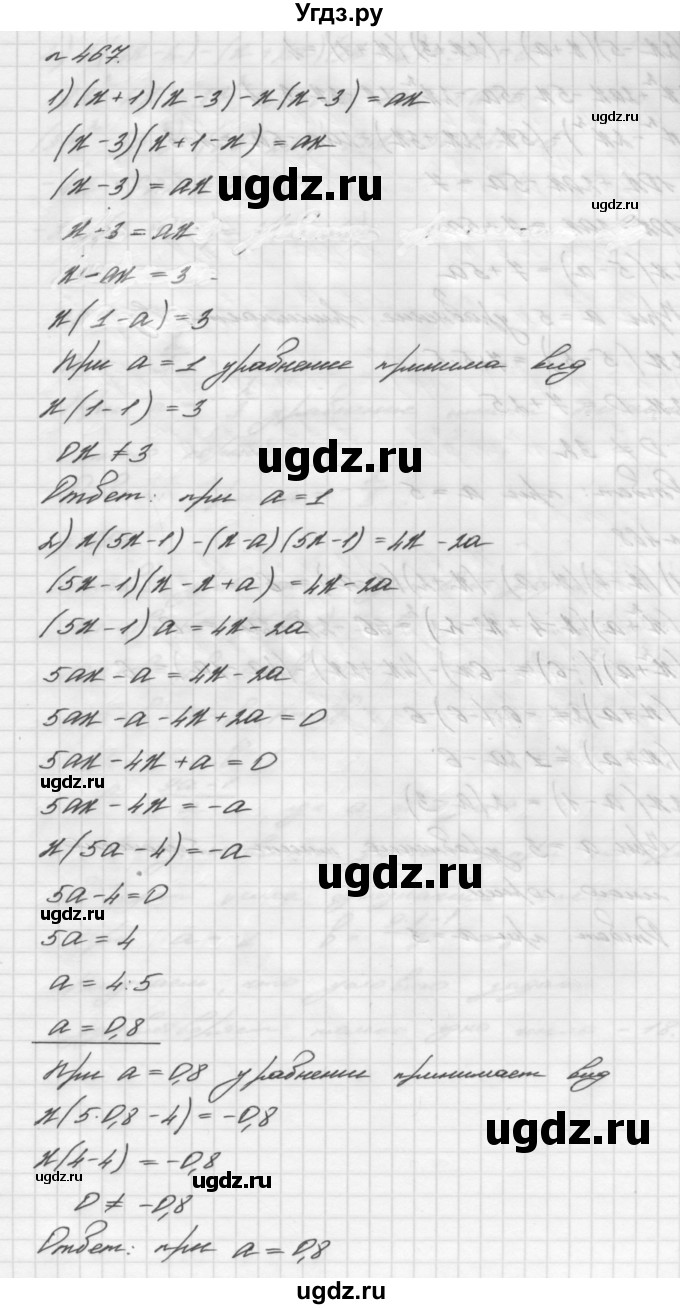 Угдз.ру
№ 467.
1) (x+1)(x-3)-x(x-3)=ax
ugdz.ru
(x-3)(x+1-x)=ax
(x-3)=ax
ugdz.ru
ugdz.ru
x-3=ax
x-ax=3
x(1-a)=3
При a=1 уравнение принима вид
x(1-1)=3
0x≠3
ugdz.ru
Ответ: при a=1
2) x(5x-1)-(x-a)(5x-1)=4x-2a
(5x-1)(x-x+a)=4x-2a
(5x-1)a=4x-2a
5ax-a=4x-2a
5ax-a-4x+2a=0
5ax-4x+a=0
ugdz.ru
5ax-4x=-a
x(5a-4)=-a
ugdz.ru
5a-4=0
ugdz.ru
5a=4
a=4:5
a=0,8
При a=0,8 уравнении принимает вид
x(5·0,8-4)=-0,8
ugdz.ru
x(4-4)=-0,8
ugdz.ru
ugdz.ru
0≠-0,8
Ответ: при a=0,8
ugdz.ru